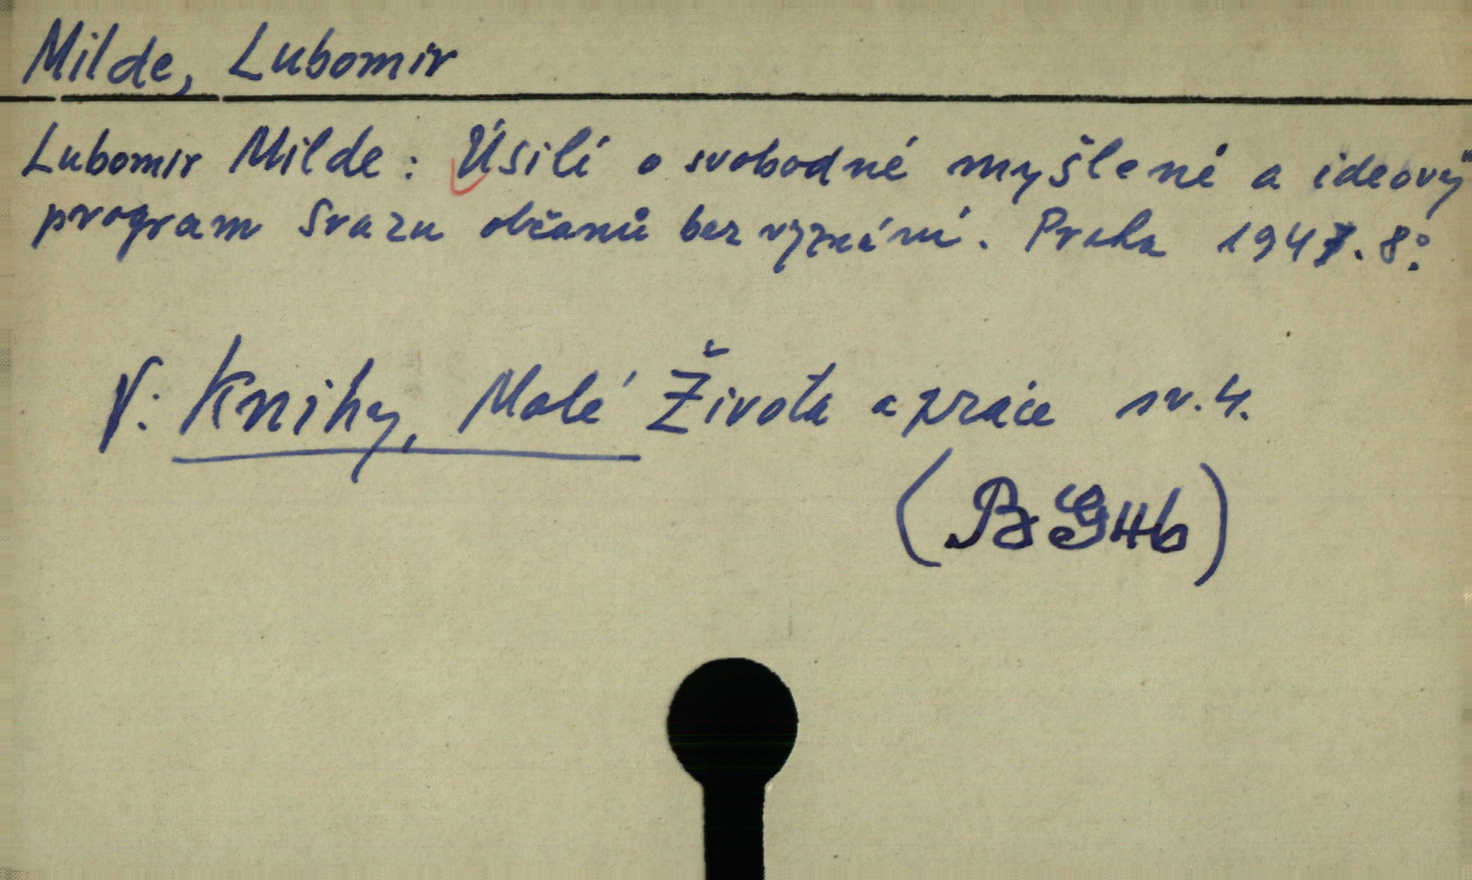 Milde, Lubomir
Lubomir Milde: Úsilí o svobodné myšlení a ideový
program Svazu občanů bez vyznání. Praha 1947. 8°.
V: Knihy, Malé Života a práce sv. 4.